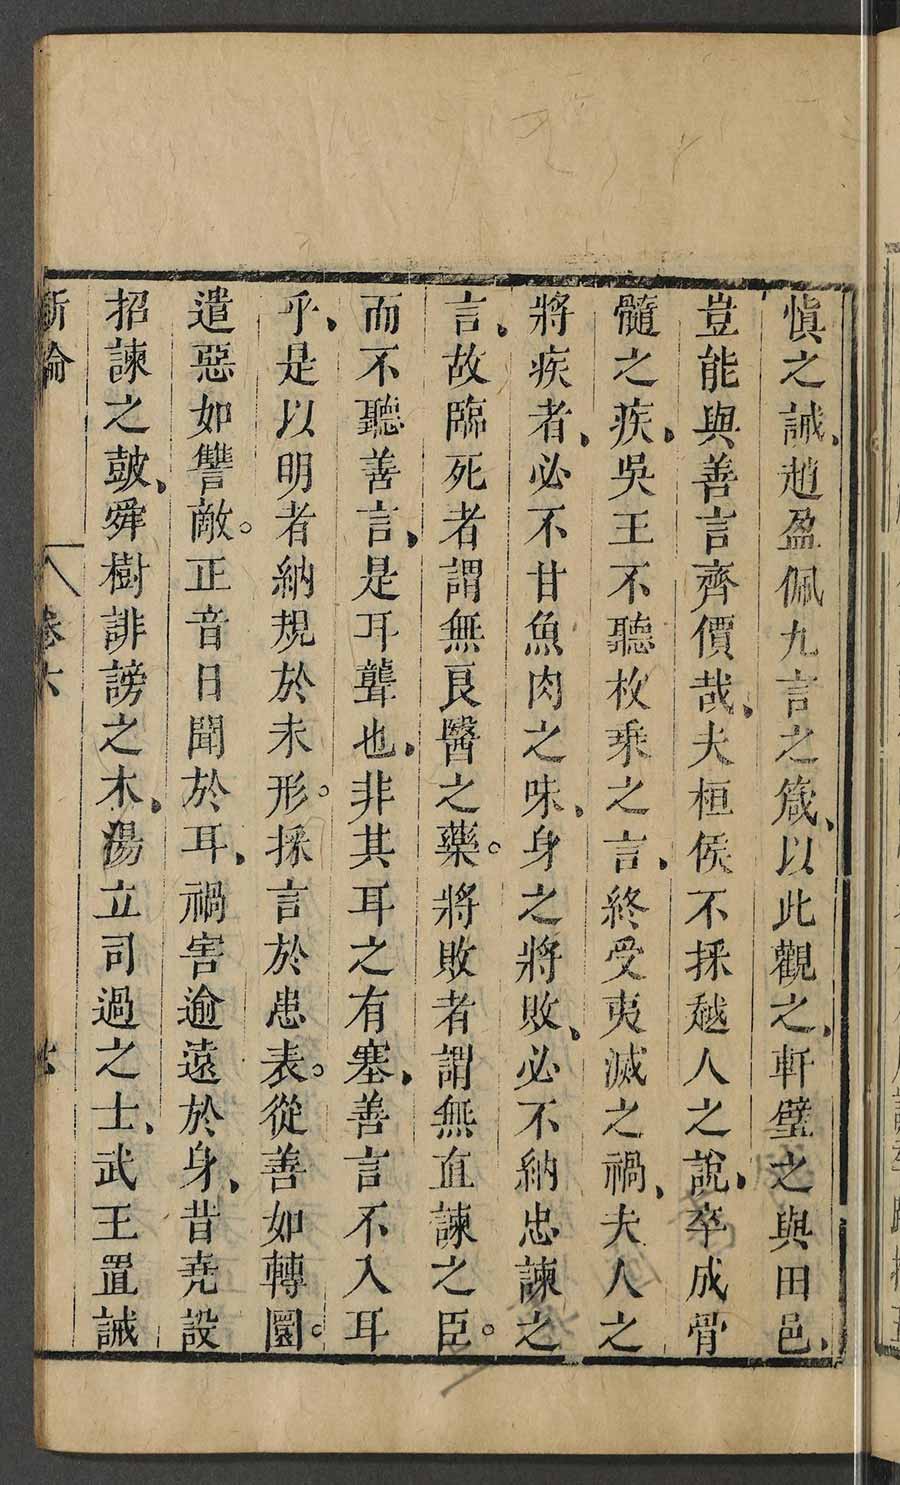 愼之誡、趙盈佩九言之箴、以此觀之、軒璧之與田邑、
豈能與善言齊價哉、夫桓侯不採越人之說、卒成骨
髓之疾、吳王不聽枚乗之言、終受夷滅之禍、夫人之
將疾者、必不甘魚肉之味、身之將敗、必不納忠諫之
言、故臨死者謂無良醫之藥。將敗者謂無直諫之臣。
而不聽善言、是耳聾也、非其耳之有塞、善言不入耳
乎、是以明者納規於未形。採言於患表。從善如轉圜。
遣惡如讐敵。正音日聞於耳、禍害逾遠於身、昔堯設
招諫之皷、舜樹誹謗之木、湯立司過之士、武王置誡
新論 卷六